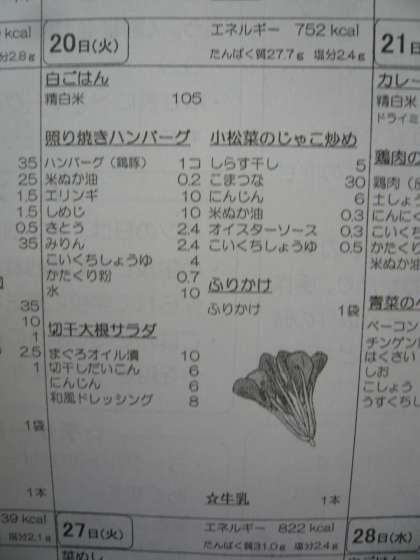 kcal
塩分2.8g
20日(火)
エネルギー 752 kcal
たんぱく質27.7g 塩分2.4g
21日
白ごはん
精白米 105
照り焼きハンバーグ
ハンバーグ(鶏豚) 1コ
米ぬか油 0.2
エリンギ 10
しめじ 10
さとう 2.4
みりん 2.4
こいくちしょうゆ 4
かたくり粉 0.7
水 10
切干大根サラダ
まぐろオイル漬 10
切干しだいこん 6
にんじん 6
和風ドレッシング 8
小松菜のじゃこ炒め
しらす干し 5
こまつな 30
にんじん 6
米ぬか油 0.3
オイスターソース 0.3
こいくちしょうゆ 0.5
ふりかけ
ふりかけ 1袋
☆牛乳 1本
35
25
1.5
1.5
0.5
35
35
10
1
2.5
1
1袋
1本
カレー
精白米
ドライミ
鶏肉の
鶏肉
土しょう
にんにく
こいくち
かたくり
米ぬか油
青菜の
ベーコン
チンゲン
はくさい
しお
こしょう
うすくちし
39 kcal
塩分2.1g
27日(火)
エネルギー 822 kcal
たんぱく質31.0g 塩分2.4g
28日(水)
菜めし